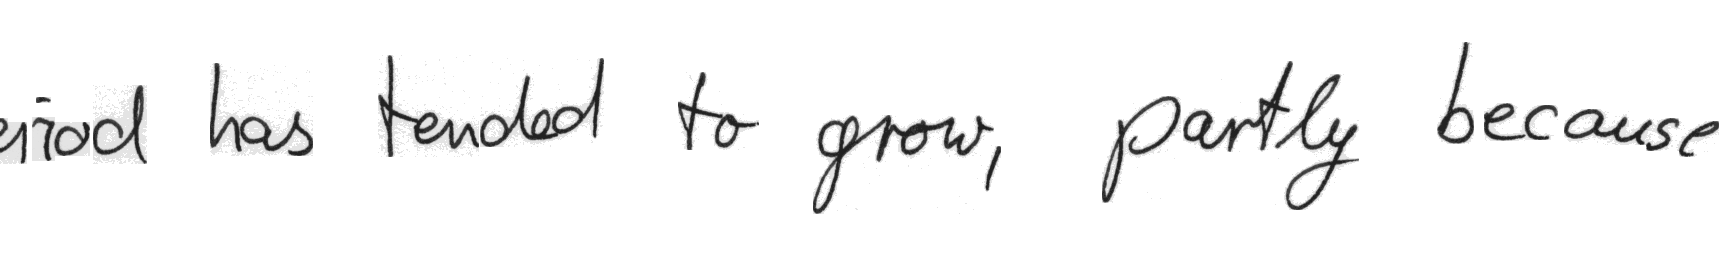 eriod has tended to grow, partly because